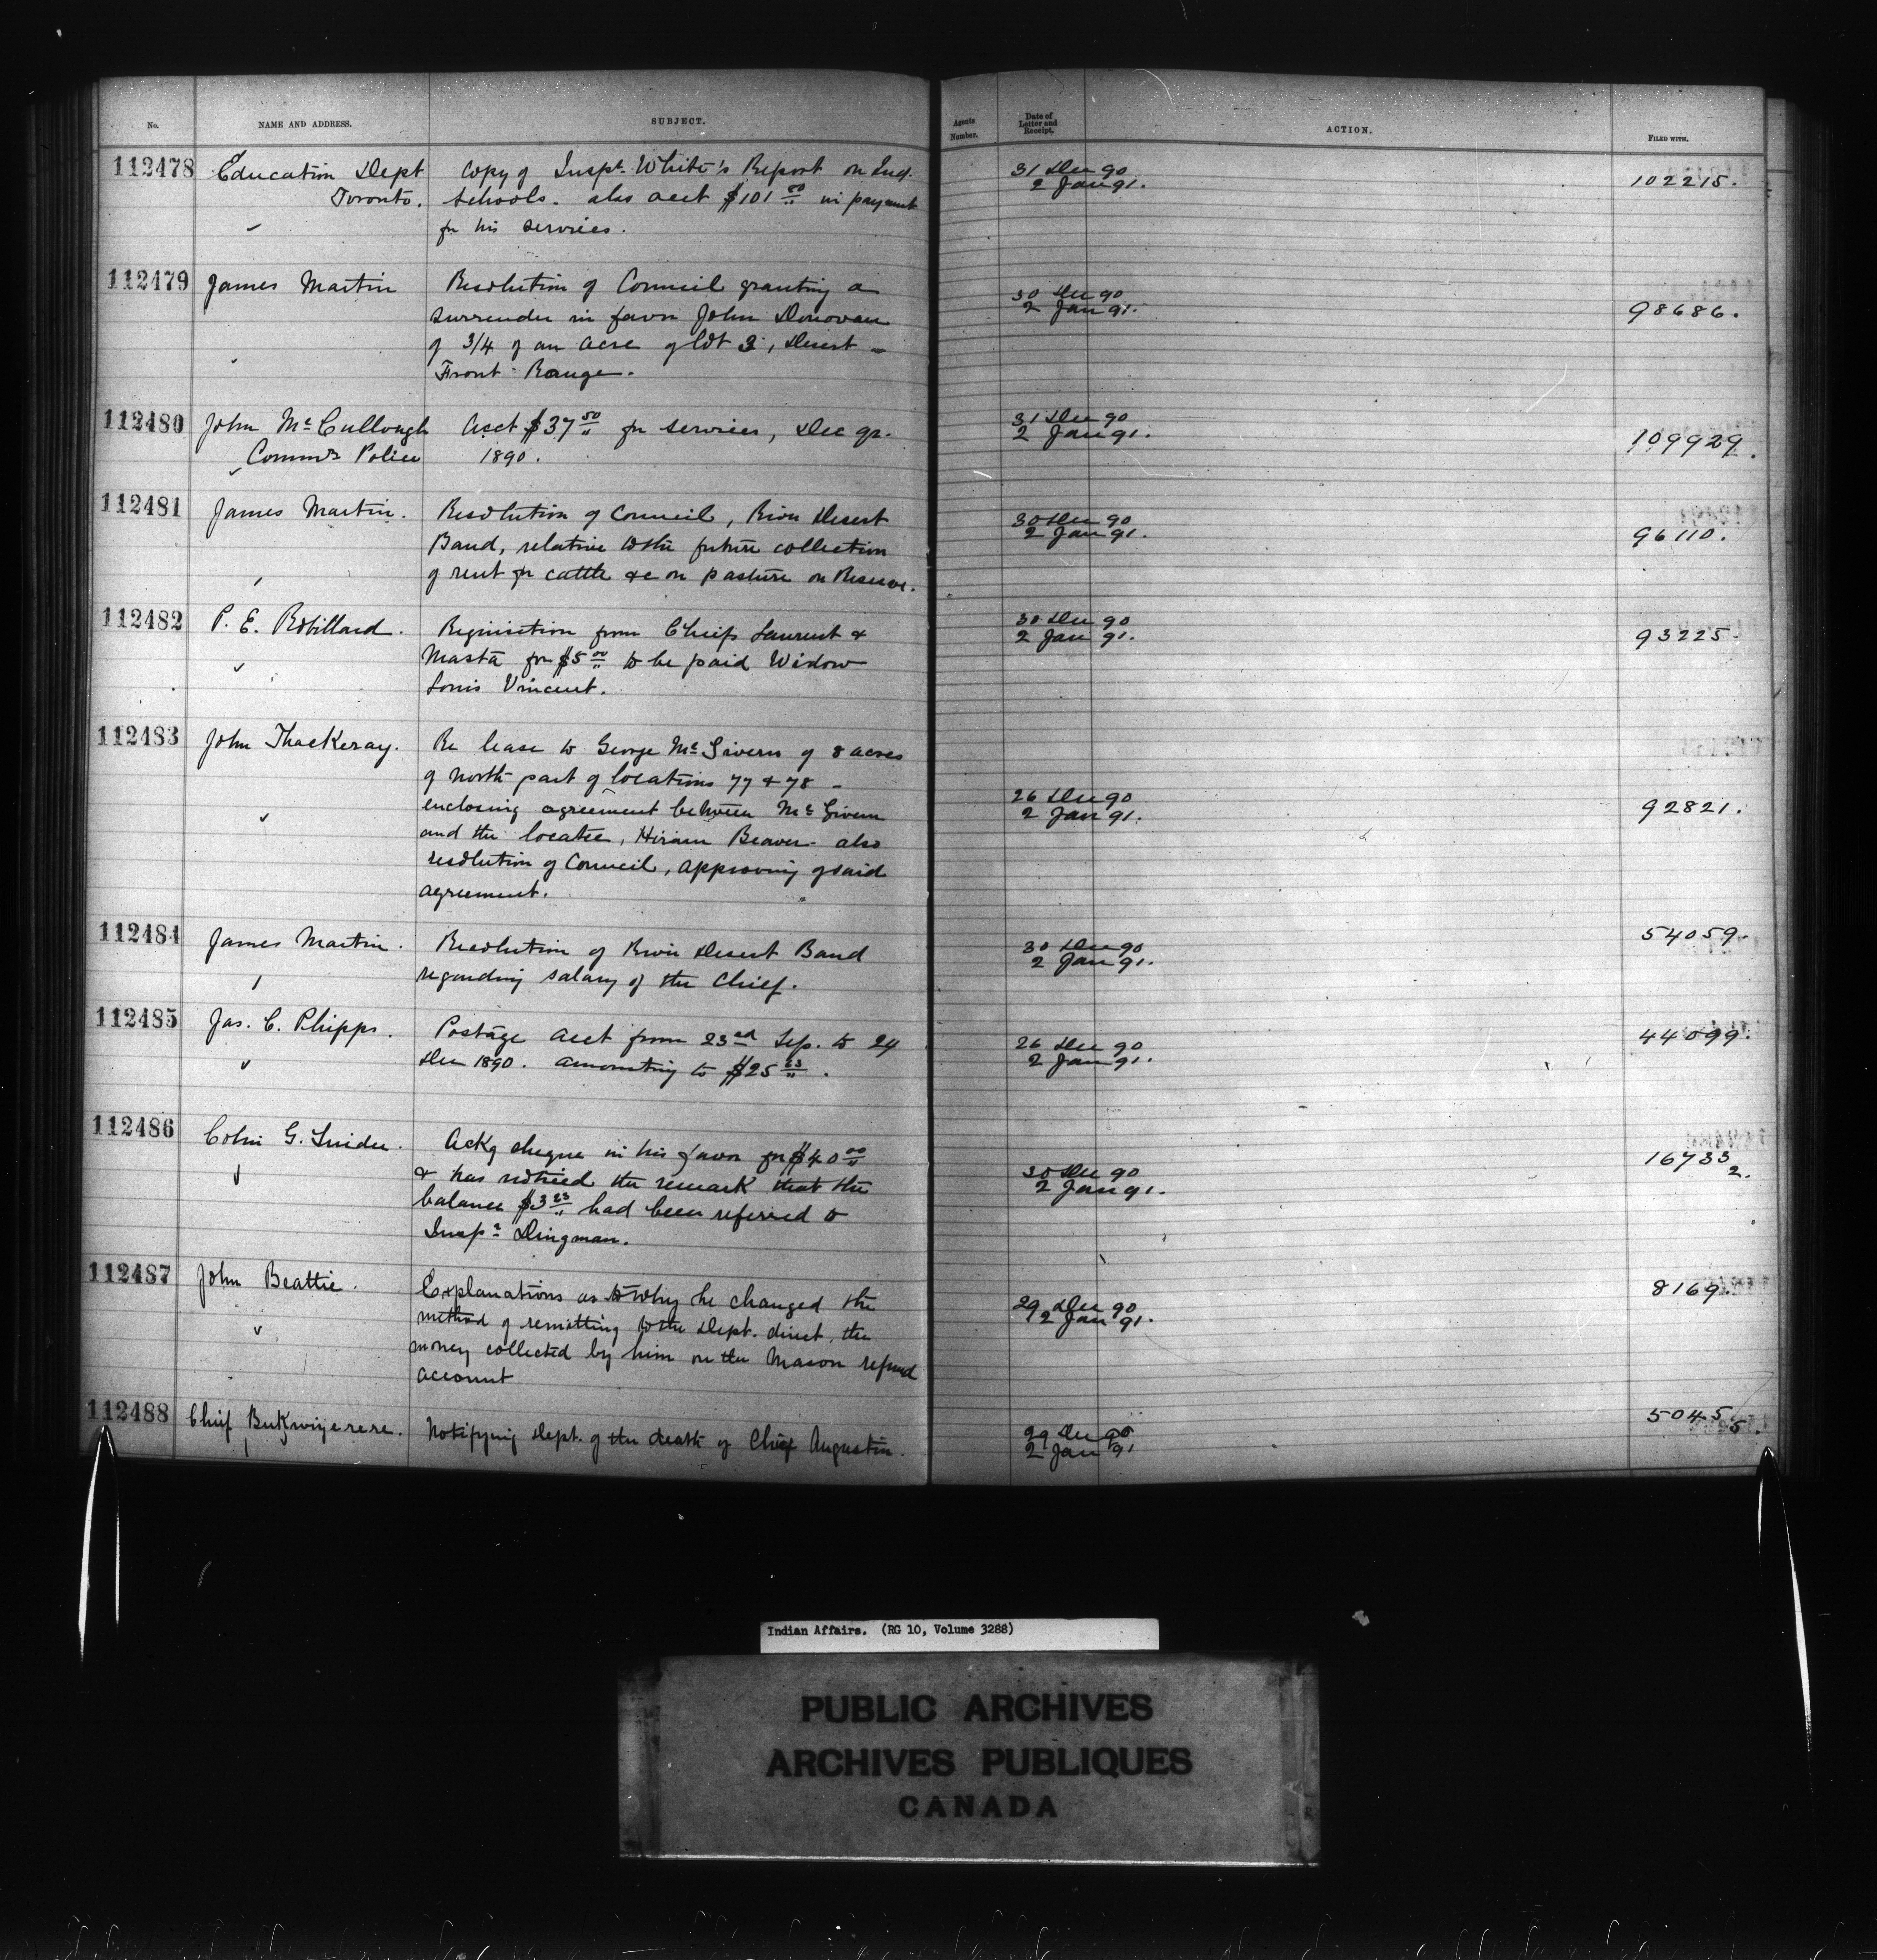 No. NAME AND ADDRESS. SUBJECT. Agents Number. Date of Letter and Receipt. ACTION. FILED WITH.
112478 Education Dept Copy of Inspr. White's Report on Ind. 31 Dec 90
Toronto. Schools. also acct $101 00/" in payment 2 Jan 91. 102215.
for his services.
112479 James Martin Resolution of Council granting a 30 Dec 90
surrender in favor John Donovan 2 Jan 91. 98686.
of 3/4 of an acre of lot 3, Desert -
Front Range.
112480 John McCullough Acct $37 50/" for services, Dec qr. 31 Dec 90
Comm'r Police 1890. 2 Jan 91. 109929.
112481 James Martin. Resolution of Council, River Desert 30 Dec 90
Band, relative to the future collection 2 Jan 91. 96110.
of rent for cattle &c on pasture on Reserve.
112482 P. E. Robillard. Requisition from Chiefs Laurent & 30 Dec 90
Masta for $5 00/" to be paid Widow 2 Jan 91. 93225
Louis Vincent.
112483 John Thackeray. Re lease to George McGivern of 8 acres
of north part of locations 77 & 78 -
enclosing agreement between McGivern 26 Dec 90
and the locatee, Hiram Beaver - also 2 Jan 91. 92821.
resolution of Council, approving of said
agreement.
112484 James Martin. Resolution of River Desert Band 30 Dec 90 54059.
regarding salary of the Chief. 2 Jan 91.
112485 Jas. C. Phipps. Postage acct from 23rd Sep. to 24 26 Dec 90 44099.
Dec 1890. amounting to $25 63/". 2 Jan 91.
112486 Colin G. Snider. Ackg cheque in his favor for $40 00/" 16733
& has noticed the remark that the 30 Dec 90 2.
balance $3 23/" had been referred to 2 Jan 91.
Inspr Dingman.
112487 John Beattie. Explanations as to why he changed the 29 Dec 90 8169.
method of remitting to the Dept. direct, the 2 Jan 91.
money collected by him on the Mason refund
account
112488 Chief Notifying Dept. of the death of Chief Augustin. 29 Dec 90 50455.
2 Jan 91
Indian Affairs. (RG 10, Volume 3288)
PUBLIC ARCHIVES
ARCHIVES PUBLIQUES
CANADA